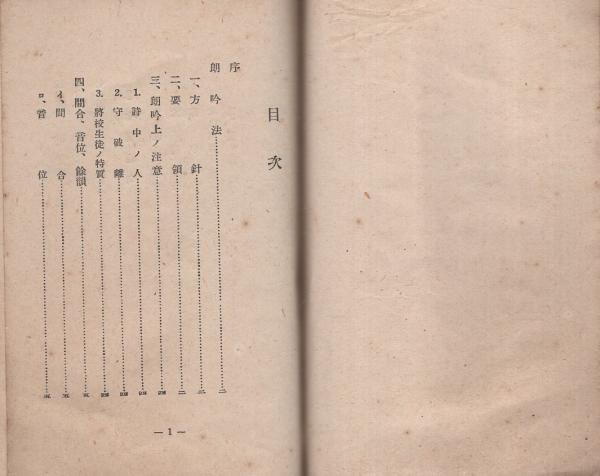 目次
序
朗吟法……二
一、方針……二
二、要領……二
三、朗吟上ノ注意……四
1. 詩中ノ人……四
2. 守破離……四
3. 將校生徒ノ特質……四
四、間合、音位、餘韻……五
イ、間合……五
ロ、音位……五
—1—